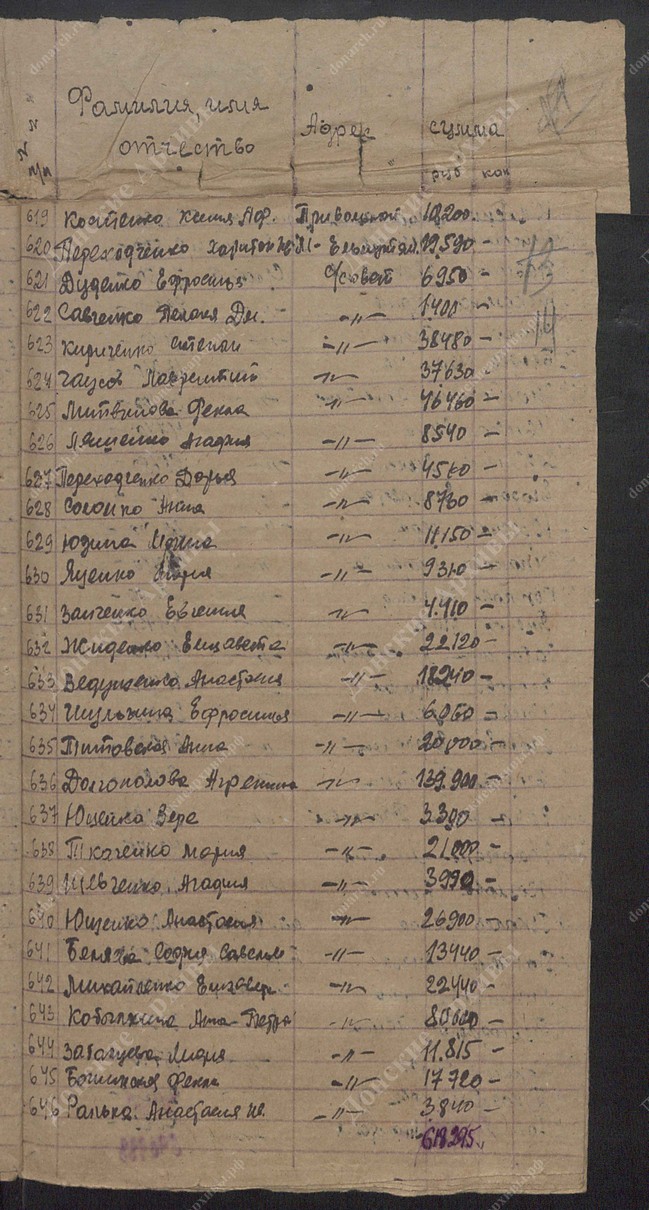 № № п/п Фамилия, имя отчество Адрес сумма
руб коп
619 Костенко Ксения Аф. Привольной 10200.
620 Переходченко Харитон 19.590 –
621 Диденко Ефросинья с/совет 6950 –
622 Савченко Пелагея Дм. –〃– 1400 –
623 Кириченко Степан –〃– 38480 –
624 Чаусов Лаврентий –〃– 37630 –
625 Литвинова Фекла –〃– 46460 –
626 Ляшенко Агафия –〃– 8540 –
627 Переходченко Дарья –〃– 4560 –
628 Солошко Анна –〃– 8730 –
629 Юдина –〃– 11150 –
630 Яценко Мария –〃– 9310 –
631 Заиченко Евгения –〃– 4.410 –
632 Жиденко Елизавета –〃– 22120 –
633 Анастасия –〃– 18240 –
634 Шульжина Ефросинья –〃– 6060 –
635 Титовская Анна –〃– 20000 –
636 Долгополова Агрепина –〃– 139.900 –
637 Ющенко Вера –〃– 3.390 –
638 Ткаченко Мария –〃– 21000 –
639 Шевченко Агафия –〃– 3990 –
640 Ющенко Анастасия –〃– 26900 –
641 София Савельев –〃– 13440 –
642 Михайленко Елизавета –〃– 22440 –
643 Кобылжина Анна Петро –〃–
644 Лидия –〃– 11.815 –
645 Фекла –〃– 17720 –
646 Ралька Анастасия Ив. –〃– 3840 –
618295